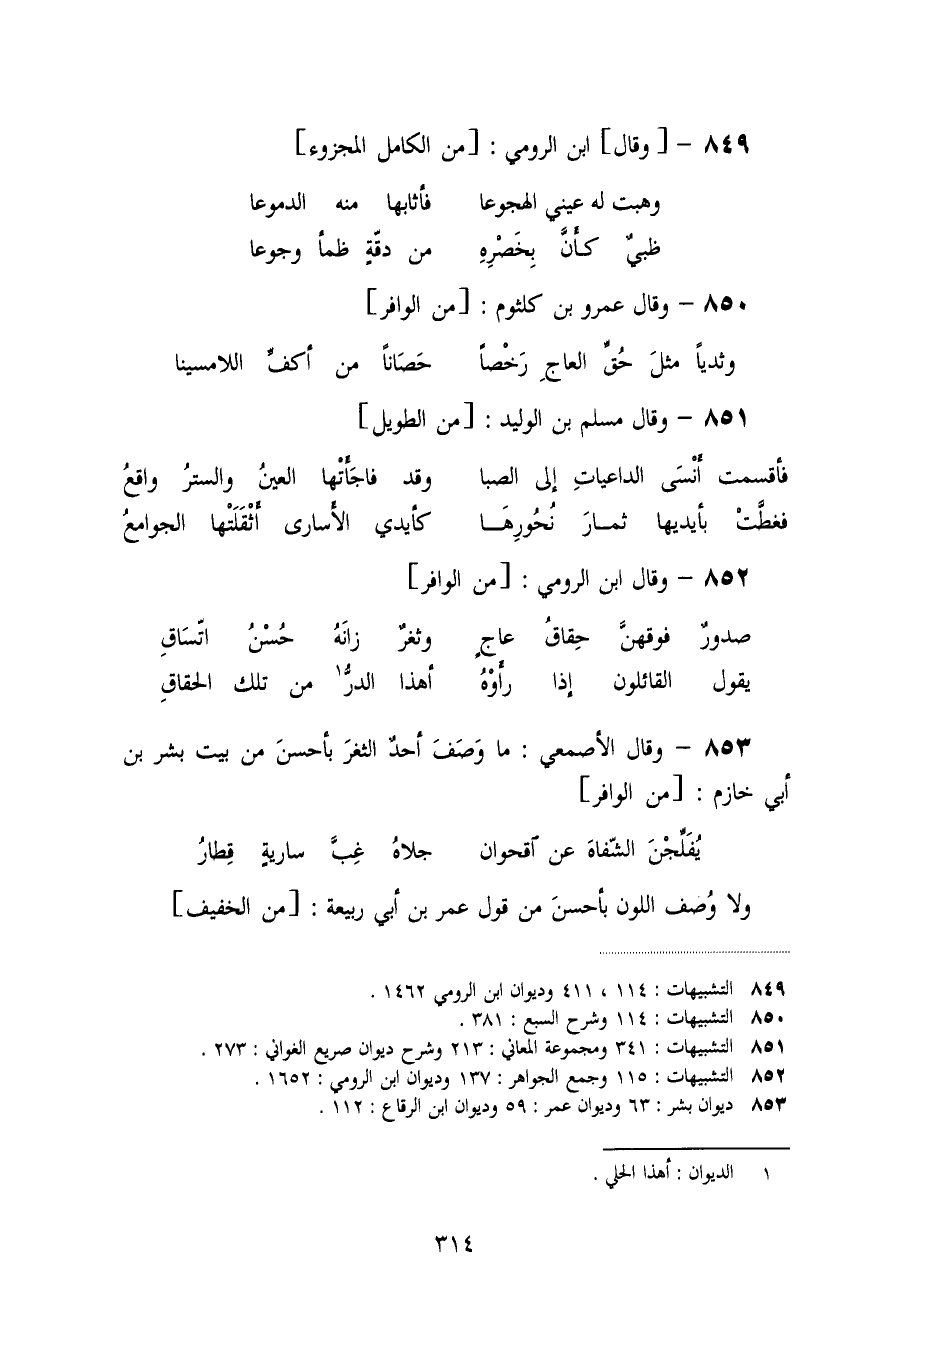 ٨٤٩ – [ وقال] ابن الرومي : [من الكامل المجزوء]
وهبت له عيني الهجوعا فأثابها منه الدموعا
ظبيٌ كأَنَّ بِخَصْرِهِ من دقّةٍ ظمأ وجوعا
٨٥٠ – وقال عمرو بن كلثوم : [من الوافر]
وثدياً مثلَ حُقِّ العاجِ رَخْصاً حَصَاناً من أكفِّ اللامسينا
٨٥١ – وقال مسلم بن الوليد : [من الطويل]
فأقسمت أَنْسَى الداعياتِ إلى الصبا وقد فاجَأَتْها العينُ والسترُ واقعُ
فغطَّتْ بأيديها ثمارَ نُحُورِهَا كأيدي الأَسارى أَثْقَلَتْها الجوامعُ
٨٥٢ – وقال ابن الرومي : [من الوافر]
صدورٌ فوقهنَّ حِقاقُ عاجٍ وثغرٌ زانَهُ حُسْنُ اتّسَاقِ
يقول القائلون إذا رأَوْهُ أهذا الدرُّ١ من تلك الحقاقِ
٨٥٣ – وقال الأصمعي : ما وَصَفَ أحدٌ الثغرَ بأحسنَ من بيت بشر بن
أبي خازم : [من الوافر]
يُفَلِّجْنَ الشّفاهَ عن آقحوان جلاهُ غِبَّ ساريةٍ قِطارُ
ولا وُصَف اللون بأحسنَ من قول عمر بن أبي ربيعة : [من الخفيف]
٨٤٩ التشبيهات : ١١٤ ، ٤١١ وديوان ابن الرومي ١٤٦٢ .
٨٥٠ التشبيهات : ١١٤ وشرح السبع : ٣٨١ .
٨٥١ التشبيهات : ٣٤١ ومجموعة المعاني : ٢١٣ وشرح ديوان صريع الغواني : ٢٧٣ .
٨٥٢ التشبيهات : ١١٥ وجمع الجواهر : ١٣٧ وديوان ابن الرومي : ١٦٥٢ .
٨٥٣ ديوان بشر : ٦٣ وديوان عمر : ٥٩ وديوان ابن الرقاع : ١١٢ .
١ الديوان : أهذا الحلي .
٣١٤